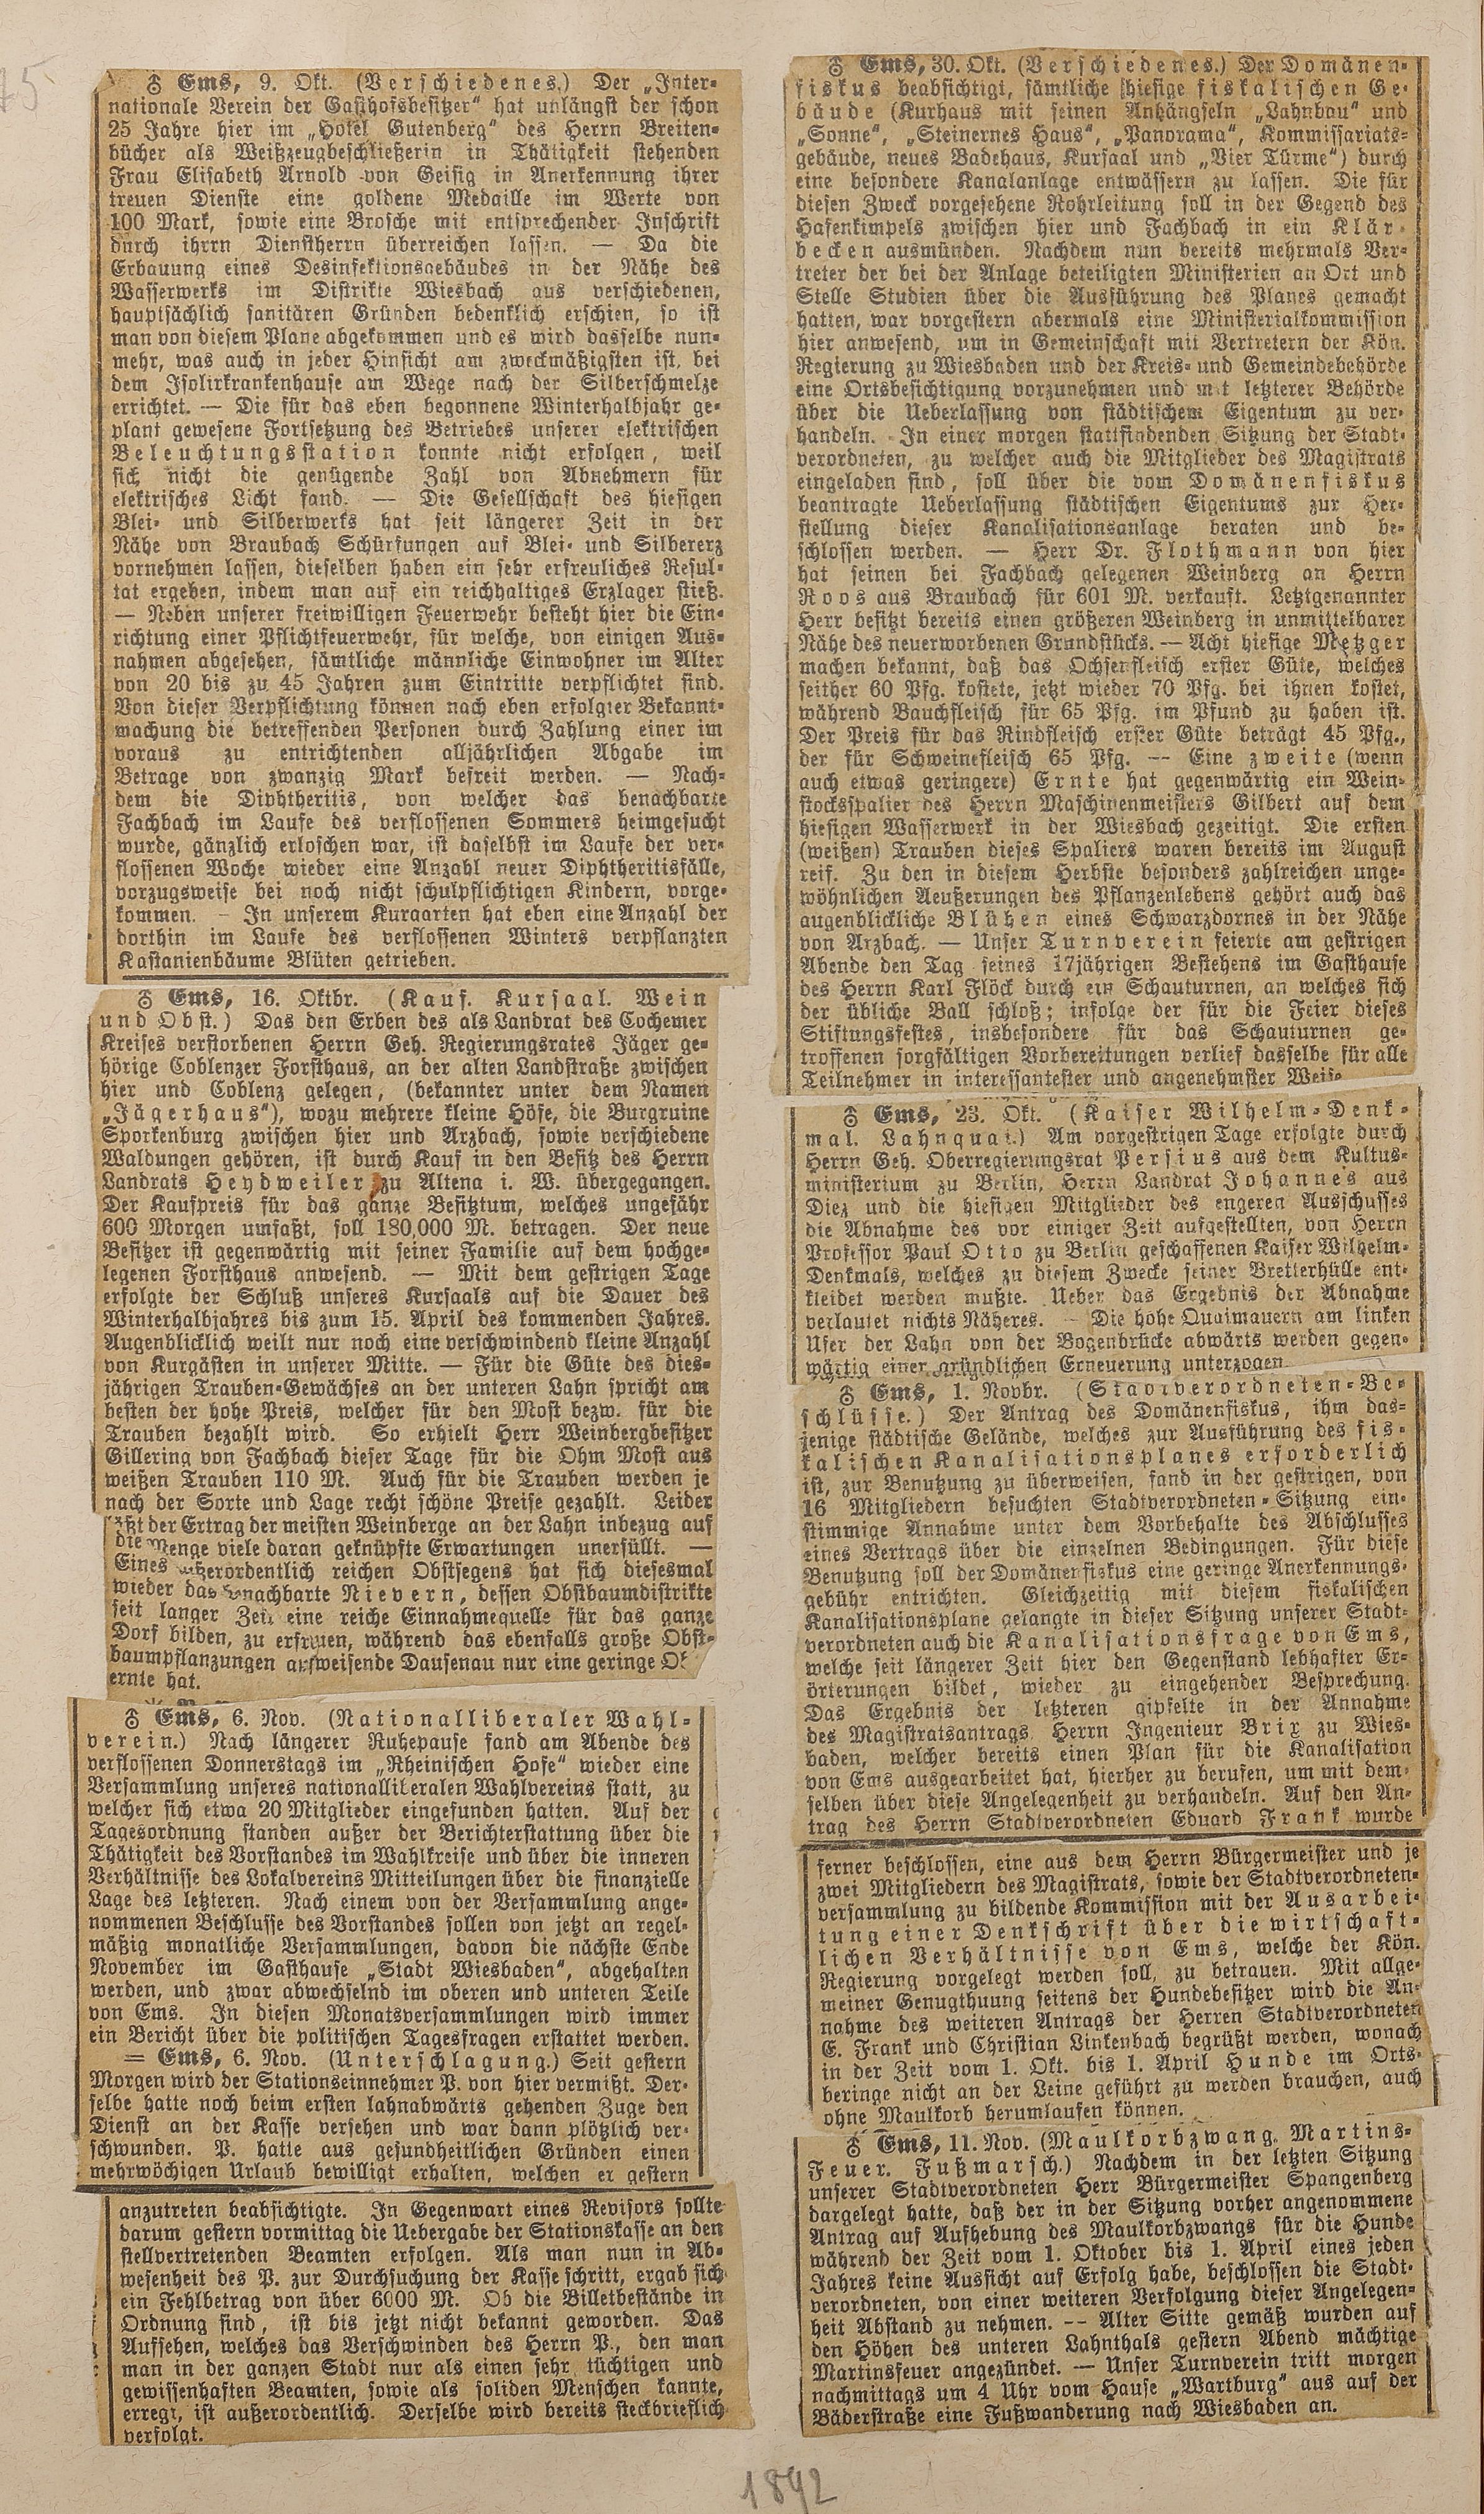 ♁ Ems, 9. Okt. (Verschiedenes.) Der „Inter-
nationale Verein der Gasthofsbesitzer“ hat unlängst der schon
25 Jahre hier im „Hotel Gutenberg“ des Herrn Breiten-
bücher als Weißzeugbeschließerin in Thätigkeit stehenden
Frau Elisabeth Arnold von Geisig in Anerkennung ihrer
treuen Dienste eine goldene Medaille im Werte von
100 Mark, sowie eine Brosche mit entsprechender Inschrift
durch ihrrn Dienstherrn überreichen lassen. — Da die
Erbauung eines Desinfektionsgebäudes in der Nähe des
Wasserwerks im Distrikte Wiesbach aus verschiedenen,
hauptsächlich sanitären Gründen bedenklich erschien, so ist
man von diesem Plane abgekommen und es wird dasselbe nun-
mehr, was auch in jeder Hinsicht am zweckmäßigsten ist, bei
dem Isolirkrankenhause am Wege nach der Silberschmelze
errichtet. — Die für das eben begonnene Winterhalbjahr ge-
plant gewesene Fortsetzung des Betriebes unserer elektrischen
Beleuchtungsstation konnte nicht erfolgen, weil
sich nicht die genügende Zahl von Abnehmern für
elektrisches Licht fand. — Die Gesellschaft des hiesigen
Blei- und Silberwerks hat seit längerer Zeit in der
Nähe von Braubach Schürfungen auf Blei- und Silbererz
vornehmen lassen, dieselben haben ein sehr erfreuliches Resul-
tat ergeben, indem man auf ein reichhaltiges Erzlager stieß.
— Neben unserer freiwilligen Feuerwehr besteht hier die Ein-
richtung einer Pflichtfeuerwehr, für welche, von einigen Aus-
nahmen abgesehen, sämtliche männliche Einwohner im Alter
von 20 bis zu 45 Jahren zum Eintritte verpflichtet sind.
Von dieser Verpflichtung können nach eben erfolgter Bekannt-
machung die betreffenden Personen durch Zahlung einer im
voraus zu entrichtenden alljährlichen Abgabe im
Betrage von zwanzig Mark befreit werden. — Nach-
dem die Diphtheritis, von welcher das benachbarte
Fachbach im Laufe des verflossenen Sommers heimgesucht
wurde, gänzlich erloschen war, ist daselbst im Laufe der ver-
flossenen Woche wieder eine Anzahl neuer Diphtheritisfälle,
vorzugsweise bei noch nicht schulpflichtigen Kindern, vorge-
kommen. – In unserem Kurgarten hat eben eine Anzahl der
dorthin im Laufe des verflossenen Winters verpflanzten
Kastanienbäume Blüten getrieben.
♁ Ems, 16. Oktbr. (Kauf. Kursaal. Wein
und Obst.) Das den Erben des als Landrat des Cochemer
Kreises verstorbenen Herrn Geh. Regierungsrates Jäger ge-
hörige Coblenzer Forsthaus, an der alten Landstraße zwischen
hier und Coblenz gelegen, (bekannter unter dem Namen
„Jägerhaus“), wozu mehrere kleine Höfe, die Burgruine
Sporkenburg zwischen hier und Arzbach, sowie verschiedene
Waldungen gehören, ist durch Kauf in den Besitz des Herrn
Landrats Heydweiler zu Altena i. W. übergegangen.
Der Kaufpreis für das ganze Besitztum, welches ungefähr
600 Morgen umfaßt, soll 180,000 M. betragen. Der neue
Besitzer ist gegenwärtig mit seiner Familie auf dem hochge-
legenen Forsthaus anwesend. — Mit dem gestrigen Tage
erfolgte der Schluß unseres Kursaals auf die Dauer des
Winterhalbjahres bis zum 15. April des kommenden Jahres.
Augenblicklich weilt nur noch eine verschwindend kleine Anzahl
von Kurgästen in unserer Mitte. — Für die Güte des dies-
jährigen Trauben-Gewächses an der unteren Lahn spricht am
besten der hohe Preis, welcher für den Most bezw. für die
Trauben bezahlt wird. So erhielt Herr Weinbergbesitzer
Gillering von Fachbach dieser Tage für die Ohm Most aus
weißen Trauben 110 M. Auch für die Trauben werden je
nach der Sorte und Lage recht schöne Preise gezahlt. Leider
läßt der Ertrag der meisten Weinberge an der Lahn inbezug auf
die Menge viele daran geknüpfte Erwartungen unerfüllt. —
Eines außerordentlich reichen Obstsegens hat sich diesesmal
wieder das benachbarte Nievern, dessen Obstbaumdistrikte
seit langer Zeit eine reiche Einnahmequelle für das ganze
Dorf bilden, zu erfreuen, während das ebenfalls große Obst-
baumpflanzungen aufweisende Dausenau nur eine geringe Ob
ernte hat.
♁ Ems, 6. Nov. (Nationalliberaler Wahl-
verein.) Nach längerer Ruhepause fand am Abende des
verflossenen Donnerstags im „Rheinischen Hofe“ wieder eine
Versammlung unseres nationalliberalen Wahlvereins statt, zu
welcher sich etwa 20 Mitglieder eingefunden hatten. Auf der
Tagesordnung standen außer der Berichterstattung über die
Thätigkeit des Vorstandes im Wahlkreise und über die inneren
Verhältnisse des Lokalvereins Mitteilungen über die finanzielle
Lage des letzteren. Nach einem von der Versammlung ange-
nommenen Beschlusse des Vorstandes sollen von jetzt an regel-
mäßig monatliche Versammlungen, davon die nächste Ende
November im Gasthause „Stadt Wiesbaden“, abgehalten
werden, und zwar abwechselnd im oberen und unteren Teile
von Ems. In diesen Monatsversammlungen wird immer
ein Bericht über die politischen Tagesfragen erstattet werden.
= Ems, 6. Nov. (Unterschlagung.) Seit gestern
Morgen wird der Stationseinnehmer P. von hier vermißt. Der-
selbe hatte noch beim ersten lahnabwärts gehenden Zuge den
Dienst an der Kasse versehen und war dann plötzlich ver-
schwunden. P. hatte aus gesundheitlichen Gründen einen
mehrwöchigen Urlaub bewilligt erhalten, welchen er gestern
anzutreten beabsichtigte. In Gegenwart eines Revisors sollte
darum gestern vormittag die Uebergabe der Stationskasse an den
stellvertretenden Beamten erfolgen. Als man nun in Ab-
wesenheit des P. zur Durchsuchung der Kasse schritt, ergab sich
ein Fehlbetrag von über 6000 M. Ob die Billetbestände in
Ordnung sind, ist bis jetzt nicht bekannt geworden. Das
Aufsehen, welches das Verschwinden des Herrn P., den man
man in der ganzen Stadt nur als einen sehr tüchtigen und
gewissenhaften Beamten, sowie als soliden Menschen kannte,
erregt, ist außerordentlich. Derselbe wird bereits steckbrieflich
verfolgt.
♁ Ems, 30. Okt. (Verschiedenes.) Der Domänen-
fiskus beabsichtigt, sämtliche hiesige fiskalischen Ge-
bäude (Kurhaus mit seinen Anhängseln „Lahnbau“ und
„Sonne“, „Steinernes Haus“, „Panorama“, Kommissariats-
gebäude, neues Badehaus, Kursaal und „Vier Türme“) durch
eine besondere Kanalanlage entwässern zu lassen. Die für
diesen Zweck vorgesehene Rohrleitung soll in der Gegend des
Hafenkimpels zwischen hier und Fachbach in ein Klär-
becken ausmünden. Nachdem nun bereits mehrmals Ver-
treter der bei der Anlage beteiligten Ministerien an Ort und
Stelle Studien über die Ausführung des Planes gemacht
hatten, war vorgestern abermals eine Ministerialkommission
hier anwesend, um in Gemeinschaft mit Vertretern der Kön.
Regierung zu Wiesbaden und der Kreis- und Gemeindebehörde
eine Ortsbesichtigung vorzunehmen und mit letzterer Behörde
über die Ueberlassung von städtischem Eigentum zu ver-
handeln. In einer morgen stattfindenden Sitzung der Stadt-
verordneten, zu welcher auch die Mitglieder des Magistrats
eingeladen sind, soll über die vom Domänenfiskus
beantragte Ueberlassung städtischen Eigentums zur Her-
stellung dieser Kanalisationsanlage beraten und be-
schlossen werden. — Herr Dr. Flothmann von hier
hat seinen bei Fachbach gelegenen Weinberg an Herrn
Roos aus Braubach für 601 M. verkauft. Letztgenannter
Herr besitzt bereits einen größeren Weinberg in unmittelbarer
Nähe des neuerworbenen Grundstücks. — Acht hiesige Metzger
machen bekannt, daß das Ochsenfleisch erster Güte, welches
seither 60 Pfg. kostete, jetzt wieder 70 Pfg. bei ihnen kostet,
während Bauchfleisch für 65 Pfg. im Pfund zu haben ist.
Der Preis für das Rindfleisch erster Güte beträgt 45 Pfg.,
der für Schweinefleisch 65 Pfg. — Eine zweite (wenn
auch etwas geringere) Ernte hat gegenwärtig ein Wein-
stocksspalier des Herrn Maschinenmeisters Gilbert auf dem
hiesigen Wasserwerk in der Wiesbach gezeitigt. Die ersten
(weißen) Trauben dieses Spaliers waren bereits im August
reif. Zu den in diesem Herbste besonders zahlreichen unge-
wöhnlichen Aeußerungen des Pflanzenlebens gehört auch das
augenblickliche Blühen eines Schwarzdornes in der Nähe
von Arzbach. — Unser Turnverein feierte am gestrigen
Abende den Tag seines 17jährigen Bestehens im Gasthause
des Herrn Karl Flöck durch ein Schauturnen, an welches sich
der übliche Ball schloß; infolge der für die Feier dieses
Stiftungsfestes, insbesondere für das Schauturnen ge-
troffenen sorgfältigen Vorbereitungen verlief dasselbe für alle
Teilnehmer in interessantester und angenehmster Weise
♁ Ems, 23. Okt. (Kaiser Wilhelm-Denk-
mal. Lahnquai.) Am vorgestrigen Tage erfolgte durch
Herrn Geh. Oberregierungsrat Persius aus dem Kultus-
ministerium zu Berlin, Herrn Landrat Johannes aus
Diez und die hiesigen Mitglieder des engeren Ausschusses
die Abnahme des vor einiger Zeit aufgestellten, von Herrn
Professor Paul Otto zu Berlin geschaffenen Kaiser Wilhelm-
Denkmals, welches zu diesem Zwecke seiner Bretterhülle ent-
kleidet werden mußte. Ueber das Ergebnis der Abnahme
verlautet nichts Näheres. – Die hohe Quaimauern am linken
Ufer der Lahn von der Bogenbrücke abwärts werden gegen-
wärtig einer gründlichen Erneuerung unterzogen.
♁ Ems, 1. Novbr. (Stadtverordneten-Be-
schlüsse.) Der Antrag des Domänenfiskus, ihm das-
jenige städtische Gelände, welches zur Ausführung des fis-
kalischen Kanalisationsplanes erforderlich
ist, zur Benutzung zu überweisen, fand in der gestrigen, von
16 Mitgliedern besuchten Stadtverordneten-Sitzung ein-
stimmige Annahme unter dem Vorbehalte des Abschlusses
eines Vertrags über die einzelnen Bedingungen. Für diese
Benutzung soll der Domänenfiskus eine geringe Anerkennungs-
gebühr entrichten. Gleichzeitig mit diesem fiskalischen
Kanalisationsplane gelangte in dieser Sitzung unserer Stadt-
verordneten auch die Kanalisationsfrage von Ems,
welche seit längerer Zeit hier den Gegenstand lebhafter Er-
örterungen bildet, wieder zu eingehender Besprechung.
Das Ergebnis der letzteren gipfelte in der Annahme
des Magistratsantrags, Herrn Ingenieur Brix zu Wies-
baden, welcher bereits einen Plan für die Kanalisation
von Ems ausgearbeitet hat, hierher zu berufen, um mit dem-
selben über diese Angelegenheit zu verhandeln. Auf den An-
trag des Herrn Stadtverordneten Eduard Frank wurde
ferner beschlossen, eine aus dem Herrn Bürgermeister und je
zwei Mitgliedern des Magistrats, sowie der Stadtverordneten-
versammlung zu bildende Kommission mit der Ausarbei-
tung einer Denkschrift über die wirtschaft-
lichen Verhältnisse von Ems, welche der Kön.
Regierung vorgelegt werden soll, zu betrauen. Mit allge-
meiner Genugthuung seitens der Hundebesitzer wird die An-
nahme des weiteren Antrags der Herren Stadtverordneten
E. Frank und Christian Linkenbach begrüßt werden, wonach
in der Zeit vom 1. Okt. bis 1. April Hunde im Orts-
beringe nicht an der Leine geführt zu werden brauchen, auch
ohne Maulkorb herumlaufen können.
♁ Ems, 11. Nov. (Maulkorbzwang. Martins-
Feuer. Fußmarsch.) Nachdem in der letzten Sitzung
unserer Stadtverordneten Herr Bürgermeister Spangenberg
dargelegt hatte, daß der in der Sitzung vorher angenommene
Antrag auf Aufhebung des Maulkorbzwangs für die Hunde
während der Zeit vom 1. Oktober bis 1. April eines jeden
Jahres keine Aussicht auf Erfolg habe, beschlossen die Stadt-
verordneten, von einer weiteren Verfolgung dieser Angelegen-
heit Abstand zu nehmen. — Alter Sitte gemäß wurden auf
den Höhen des unteren Lahnthals gestern Abend mächtige
Martinsfeuer angezündet. — Unser Turnverein tritt morgen
nachmittags um 4 Uhr vom Hause „Wartburg“ aus auf der
Bäderstraße eine Fußwanderung nach Wiesbaden an.
1892